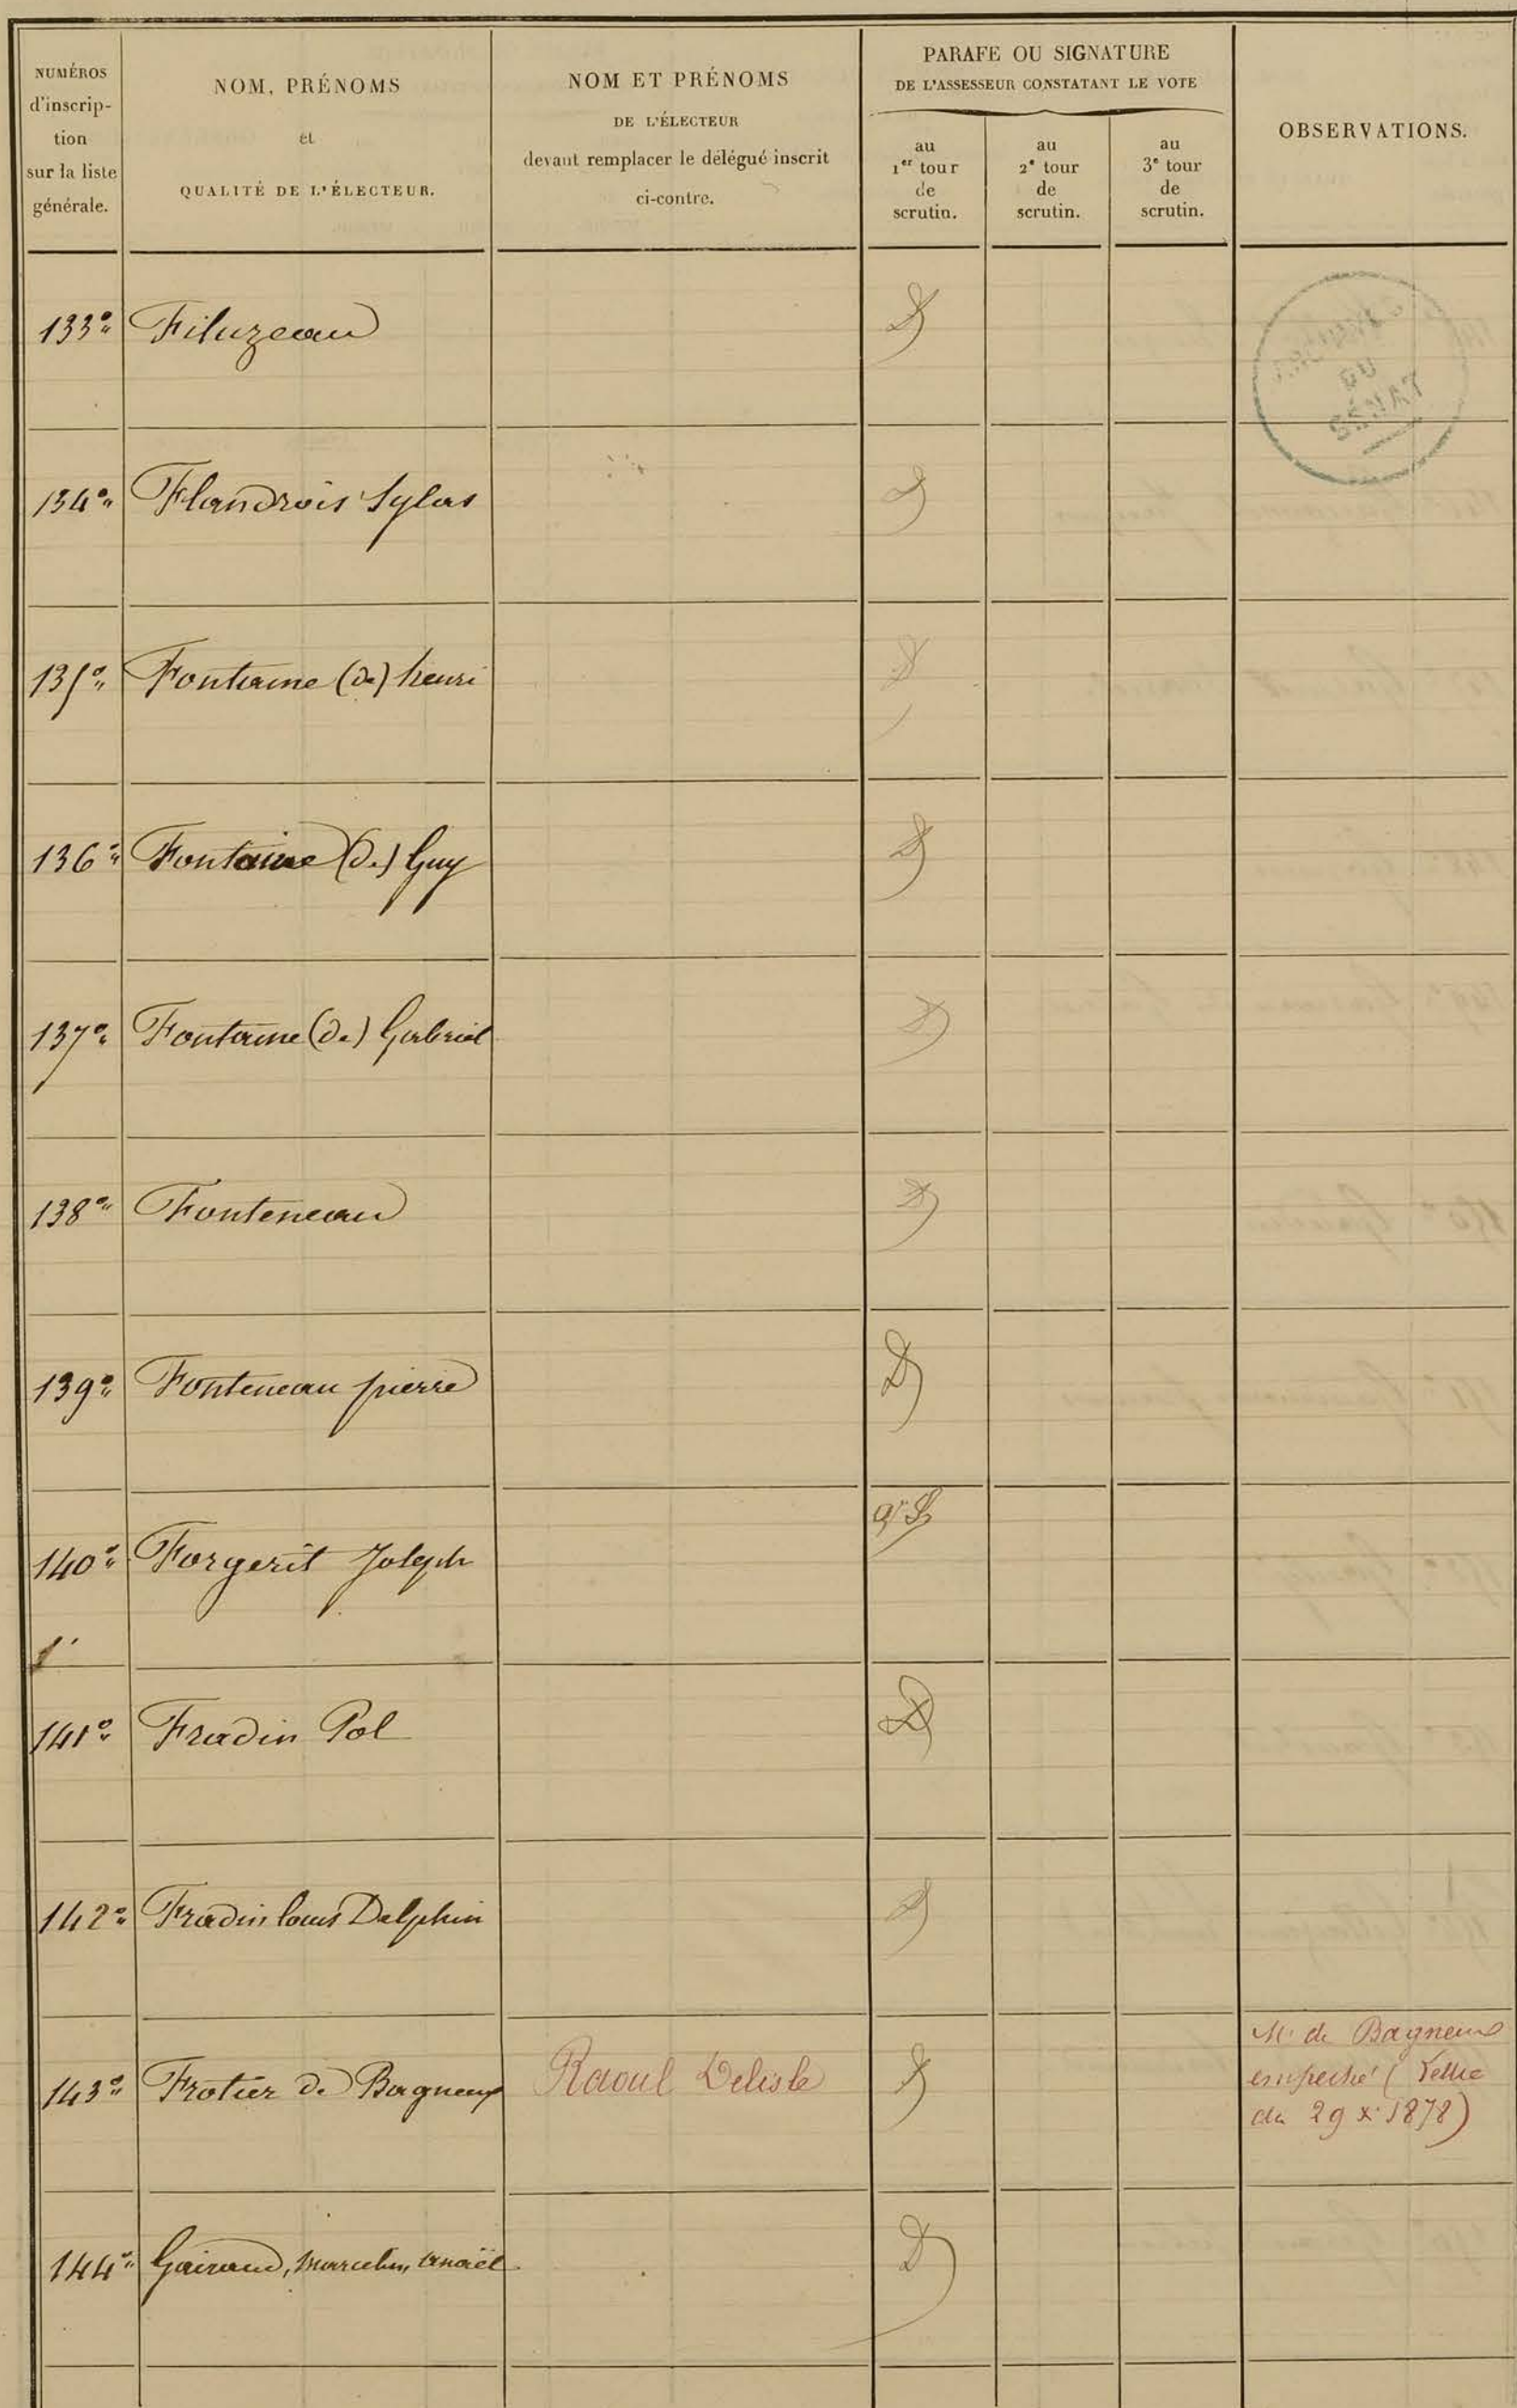 NUMÉROS
d'inscrip-
tion
sur la liste
générale.
NOM, PRÉNOMS
et
QUALITÉ DE L'ÉLECTEUR.
NOM ET PRÉNOMS
DE L'ÉLECTEUR
devant remplacer le délégué inscrit
ci-contre.
PARAFE OU SIGNATURE
DE L'ASSESSEUR CONSTATANT LE VOTE
au
1er tour
de
scrutin.
au
2e tour
de
scrutin.
au
3e tour
de
scrutin.
OBSERVATIONS.
133° Filuzeau
134° Flandrois Sylas
135° Fontaine (de) henri
136° Fontaine (de) Guy
137° Fontaine (de) Gabriel
138° Fonteneau
139° Fonteneau pierre
140° Forgerit Joseph
141° Fradin Pol
142° Fradin louis Delphin
143° Frotier de Bagneux Raoul Delisle
M. de Bagneux
empeché (lettre
du 29 x 1878)
144° Gairaud, Marcelin, Anaël